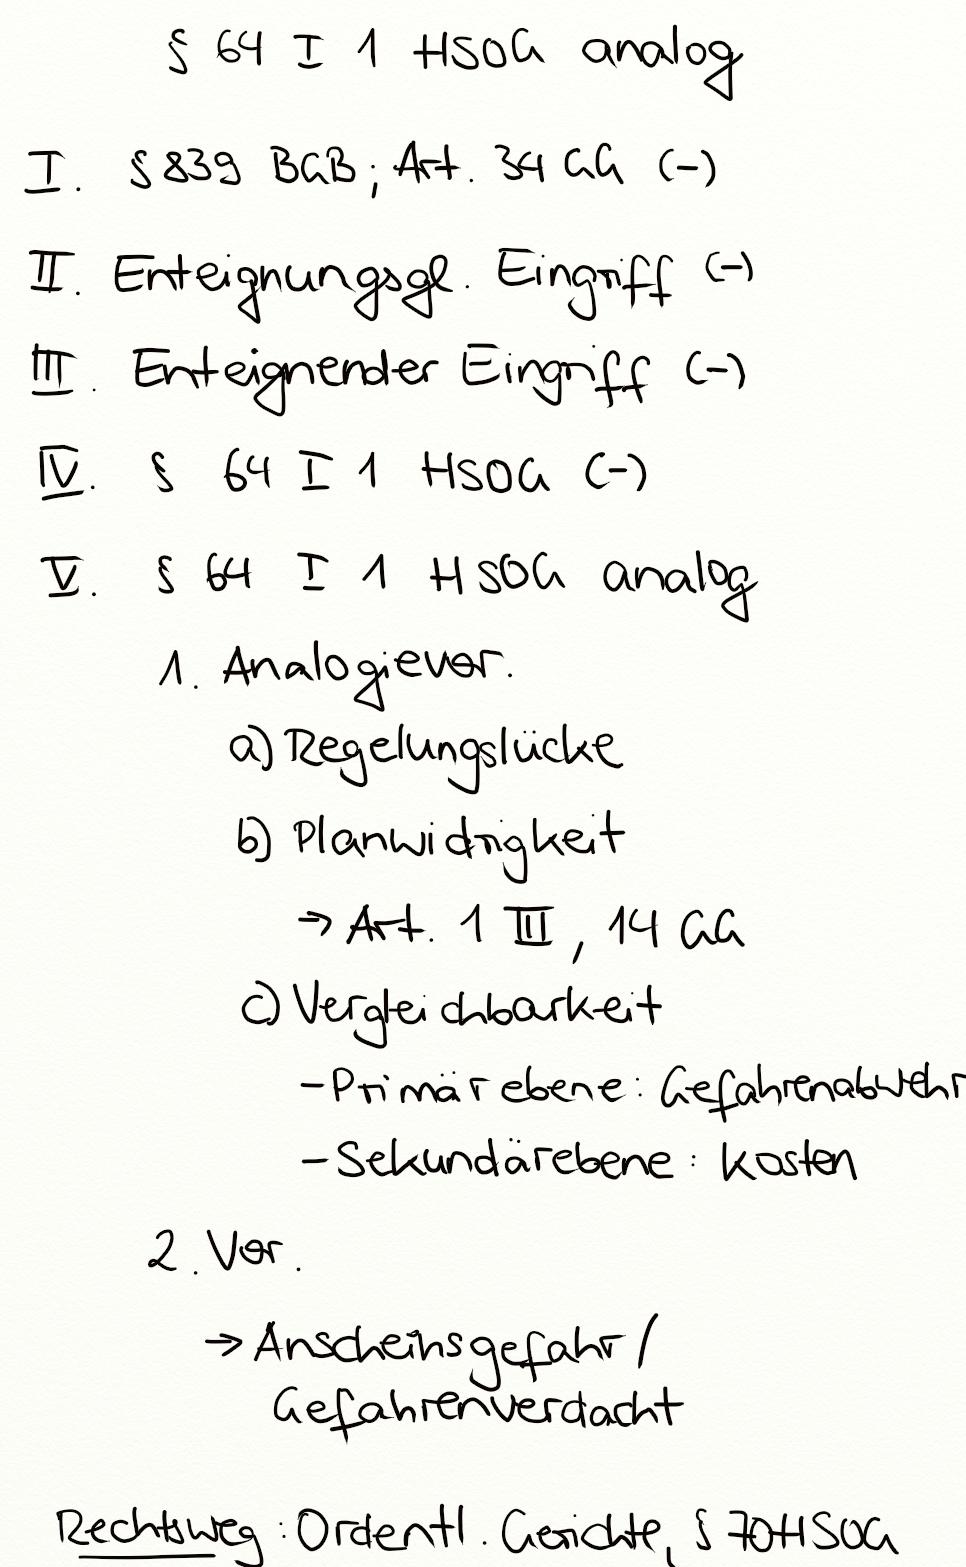 § 64 I 1 HSOG analog
I. § 839 BGB; Art. 34 GG (-)
II. Enteignungsgl. Eingriff (-)
III. Enteignender Eingriff (-)
IV. § 64 I 1 HSOG (-)
V. § 64 I 1 HSOG analog
1. Analogievor.
a) Regelungslücke
b) Planwidrigkeit
→ Art. 1 III, 14 GG
c) Vergleichbarkeit
- Primärebene: Gefahrenabwehr
- Sekundärebene: Kosten
2. Vor.
→ Anscheinsgefahr /
Gefahrenverdacht
Rechtsweg: Ordentl. Gerichte, § 70 HSOG